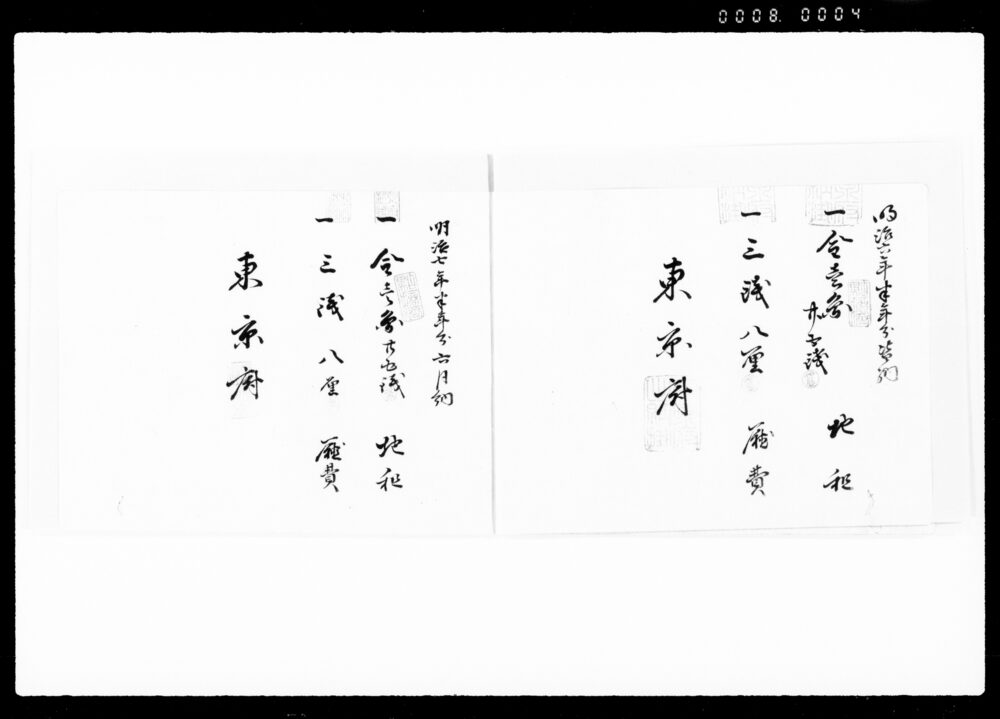 0008. 0004
明治六年半年分皆納
一金壱円
廿五銭
地租
一三銭八厘 雑費
東京府
明治七年半年分六月納
一金壱円廿五銭 地租
一三銭八厘 雑費
東京府